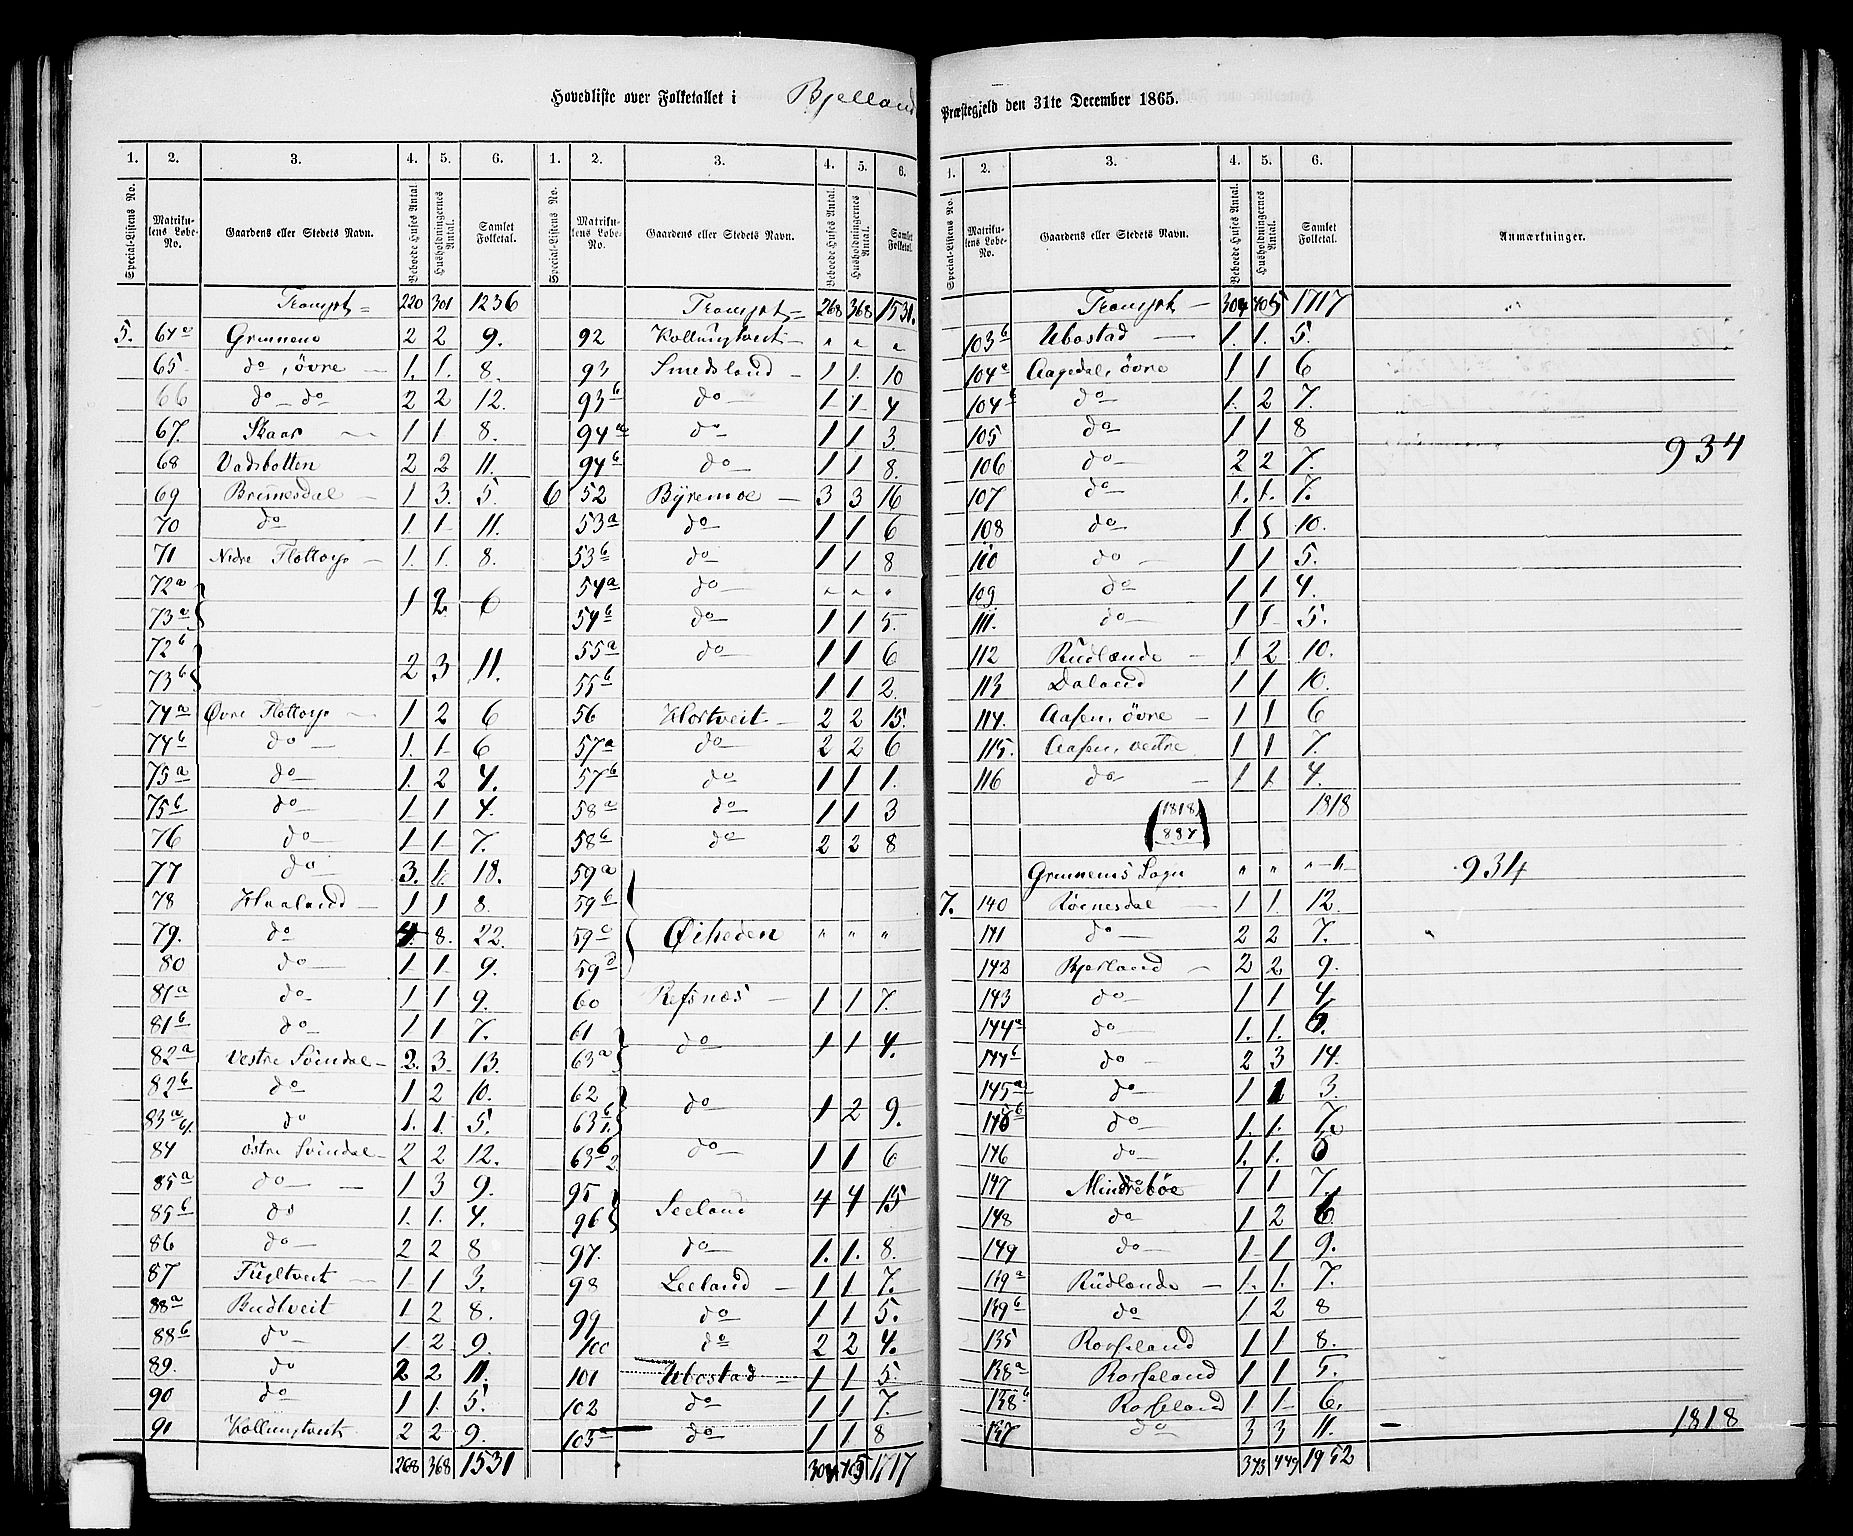 Hovedliste over Folketallet i Bjelland Præstegjeld den 31te December 1865.
1. 2. 3. 4. 5. 6. 1. 2. 3. 4. 5. 6.
Special-Listens No. Matrikulens Løbe-No. Gaardens eller Stedets Navn. Beboede Huses Antal. Husholdningernes Antal. Samlet Folketal. Special-Listens No. Matrikulens Løbe-No. Gaardens eller Stedets Navn. Beboede Huses Antal. Husholdningernes Antal. Samlet Folketal.
Transpt = 220 301 1236
5. 64a Grinnem 2 2 9.
65 do, øvre 1. 1. 8.
66 do do 2 2 12.
67. Skaar 1 1 8.
68 Vadsbotten 2 2 11.
69 Brinnesdal 1 3. 5.
70 do 1 1 11.
71 Nedre Flottorp 1. 1. 8.
72a
73a 1 2 6
72b
73b 2 3 11.
74a Øvre Flottorp 1 2 6
74b do 1. 1 6
75a do 1. 2 4.
75b do 1 1 4.
76 do 1 1 7.
77 do 3. 1. 18.
78 Haaland 1 1 8.
79. do 4. 8. 22.
80 do 1 1 9.
81a do 1 1 9.
81b do 1 1 7.
82a Vestre Svindal 2. 3. 13.
82b do 1 2 10.
83a do 1. 1. 5.
84 Østre Svindal 2 2 12.
85a do 1 3 9.
85b do 1. 1. 4.
86 do 2 2 8
87 Fugltveit 1 1 3.
88a Budtveit 1. 2 8.
88b do 1. 2. 9.
89. do 2 2 11.
90 do 1 1. 5.
91 Kollungtveit 2 2 9.
268 368 1531
Transpt = 268 368 1531.
92 Kollungtveit " " "
93 Smedsland 1 1. 10
93b do 1 1 4
94a do 1 1 3.
94b do 1 1 8.
6 52 Byremoe 3 3 16
53a do 1 1 6
53b do 1 1 8
54a do " " "
54b do 1 1 5.
55a do 1 1 6
55b 1 1 2.
56 Hortveit 2 2 15.
57a do 2 2 6
57b do 1 1 1.
58a do 1 1 3
58b do 2 2 8
59a
59b
59c Øiheden " " "
59d
60 Refsnæs 1 1 7.
61
63a do 1 1 4.
62
63b 1. do 1 2 9.
63b 2 do 1 1 6
95
96 Seeland 4 4 15
97. do 1. 1. 8.
98 Leeland 1 1 7.
99 do 1 1 5.
100 do 2 2 4.
101 Ubostad 1 1 5.
102 do 1 1 7.
103a do 1 1 8
304 405 1717
1. 2. 3. 4. 5. 6.
Special-Listens No. Matrikulens Løbe-No. Gaardens eller Stedets Navn. Beboede Huses Antal. Husholdningernes Antal. Samlet Folketal. Anmærkninger.
Transpt 304 405 1717
103b Ubostad 1. 1. 5.
104a Aagedal, øvre 1 1 6
104b do 1. 2 7.
105 do 1 1 8
934
106 do 2 2 7.
107 do 1. 1. 7.
108 do 1. 10.
110 do 1 1 5.
109 do 1 1 4.
111. do 1 1 5.
112 Rudlende 1 2 10.
113 Daland 1 1 10.
114. Aasen, øvre 1 1 6
115. Aasen, vestre 1 1 7.
116 do 1 1. 4.
(1818) 1818
(884)
Grinnems Sogn " " " 934
7. 140 Røinesdal 1 1. 12.
141 do 2 2 7.
142 Bjerland 2 2 9.
143 do 1 1 4
144a do 1. 1. 6.
144b do 2 3 14.
145a do 1 1 3.
145b do 1. 1. 7.
146 do 1. 1. 6
147 Mindrebøe 1 1 7.
148 do 1 2 6.
149 do 1 1 9.
139a Rudlende 1. 1. 7.
139b do 1 2 8
135 Rosseland 1 1 8.
138a Rosseland 1 1 5.
138b Rosseland 1 1 6.
137 do 3 3 11. 1818
343 449 1952